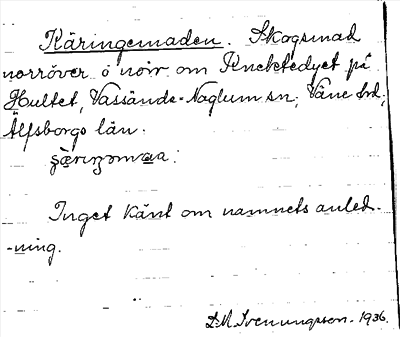 Käringemaden. Skogsmad
norröver o norr om Knektedyet på
Hultet, Vassände-Naglum sn, Väne hd,
Älfsborgs län.
Inget känt om namnets anled-
-ning.
D.M. Svenungsson. 1936.